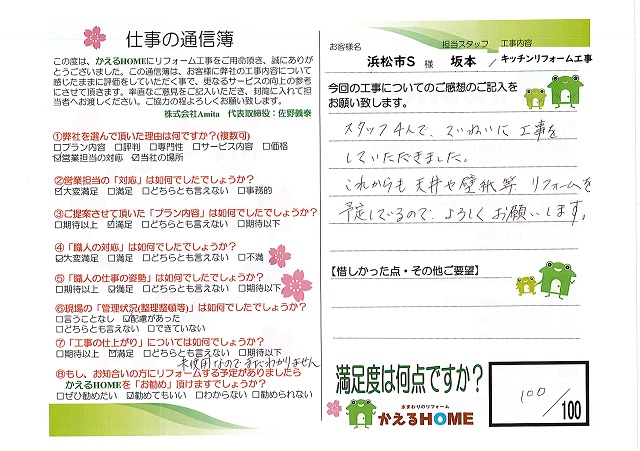 仕事の通信簿
この度は、かえるHOMEにリフォーム工事をご用命頂き、誠にありが
とうございました。この通信簿は、お客様に弊社の工事内容について
感じたままに評価をしていただく事で、更なるサービスの向上の参考
にさせて頂きます。率直なご意見をご記入いただき、封筒に入れて担
当者へお渡しください。ご協力の程よろしくお願い致します。
株式会社Amita 代表取締役：佐野義泰
①弊社を選んで頂いた理由は何ですか?(複数可)
□プラン内容 □評判 □専門性 □サービス内容 □価格
☑営業担当の対応 ☑当社の場所
②営業担当の「対応」は如何でしたでしょうか?
☑大変満足 □満足 □どちらとも言えない □事務的
③ご提案させて頂いた「プラン内容」は如何でしたでしょうか?
□期待以上 ☑満足 □どちらとも言えない □期待以下
④「職人の対応」は如何でしたでしょうか?
☑大変満足 □満足 □どちらとも言えない □不満
⑤「職人の仕事の姿勢」は如何でしたでしょうか?
□期待以上 ☑満足 □どちらとも言えない □期待以下
⑥現場の「管理状況(整理整頓等)」は如何でしたでしょうか?
□言うことなし ☑配慮があった
□どちらとも言えない □できていない
⑦「工事の仕上がり」については如何でしたでしょうか?
□期待以上 ☑満足 □どちらとも言えない □期待以下
未使用なので、まだわかりません
⑧もし、お知合いの方にリフォームする予定がありましたら
かえるHOMEを「お勧め」頂けますでしょうか?
□ぜひ勧めたい ☑勧めてもいい □わからない □勧められない
お客様名 担当スタッフ 工事内容
浜松市S 様 坂本 / キッチンリフォーム工事
今回の工事についてのご感想のご記入を
お願い致します。
スタッフ4人で、ていねいに工事を
していただきました。
これからも天井や壁紙等 リフォームを
予定しているので、よろしくお願いします。
【惜しかった点・その他ご要望】
満足度は何点ですか?
100/100
水まわりのリフォーム
かえるHOME